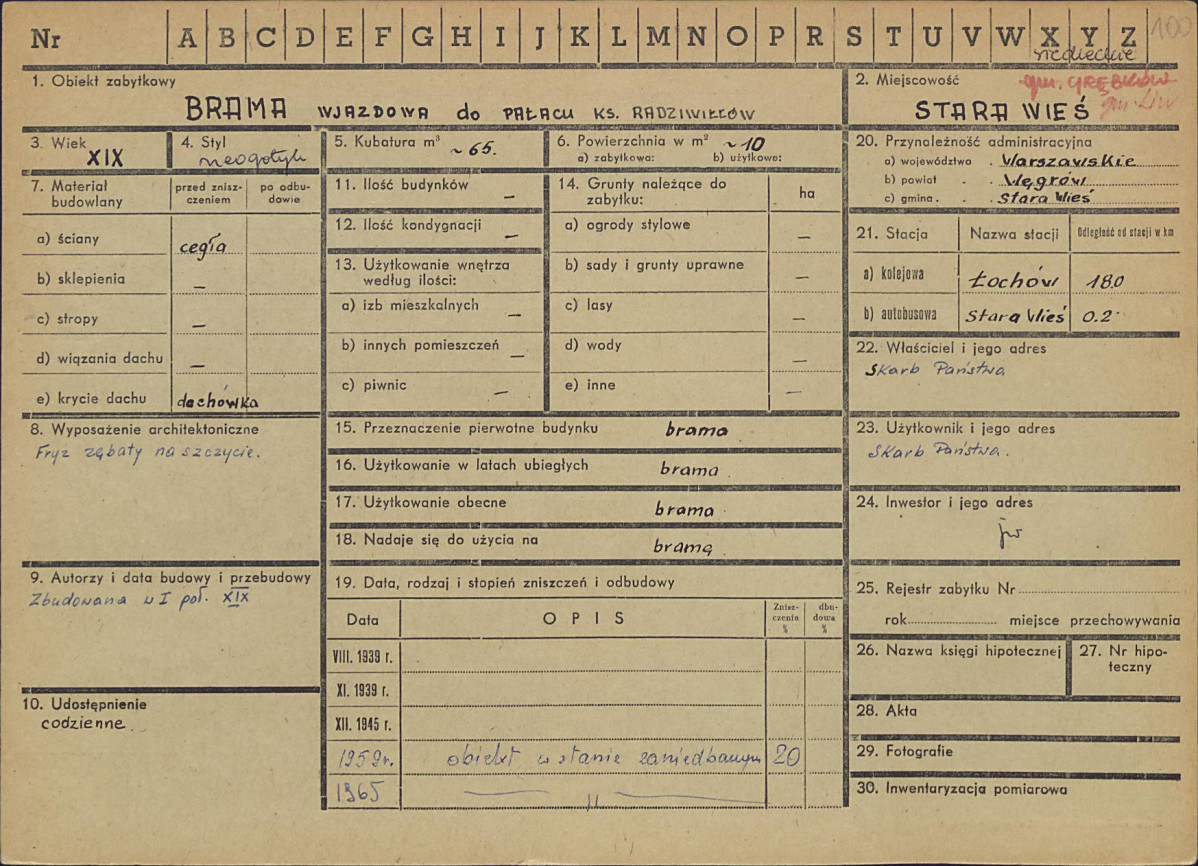 Nr A B C D E F G H I J K L M N O P R S T U V W X Y Z 100
nieczynne
1. Obiekt zabytkowy
BRAMA WJAZDOWA do PAŁACU KS. RADZIWIŁŁÓW
2. Miejscowość
gm. GRĘBKÓW
gm Liw
STARA WIEŚ
3. Wiek
XIX
4. Styl
neogotyk
5. Kubatura m³
~ 65.
6. Powierzchnia w m² ~ 10
a) zabytkowa: b) użytkowe:
7. Materiał budowlany
przed zniszczeniem
po odbudowie
a) ściany cegła
b) sklepienia –
c) stropy –
d) wiązania dachu –
e) krycie dachu dachówka
8. Wyposażenie architektoniczne
Fryz ząbaty na szczycie.
9. Autorzy i data budowy i przebudowy
Zbudowana w I poł. XIX
10. Udostępnienie
codzienne
11. Ilość budynków –
12. Ilość kondygnacji –
13. Użytkowanie wnętrza
według ilości:
a) izb mieszkalnych –
b) innych pomieszczeń –
c) piwnic –
14. Grunty należące do
zabytku:
ha
a) ogrody stylowe –
b) sady i grunty uprawne –
c) lasy –
d) wody –
e) inne –
15. Przeznaczenie pierwotne budynku brama
16. Użytkowanie w latach ubiegłych brama
17. Użytkowanie obecne brama
18. Nadaje się do użycia na bramę
19. Data, rodzaj i stopień zniszczeń i odbudowy
Data
OPIS
Zniszczenia %
dbudowa %
VIII. 1939 r.
XI. 1939 r.
XII. 1945 r.
1959r. obiekt w stanie zaniedbanym 20
1965 — 〃 —
20. Przynoleżność administracyjna
a) województwo . Warszawskie
b) powiat . . Węgrów
c) gmina . . Stara Wieś
21. Stacja
Nazwa stacji
Odległość od stacji w km
a) kolejowa Łochów 18.0
b) autobusowa Stara Wieś 0.2
22. Właściciel i jego adres
Skarb Państwa
23. Użytkownik i jego adres
Skarb Państwa.
24. Inwestor i jego adres
jw
25. Rejestr zabytku Nr
rok miejsce przechowywania
26. Nazwa księgi hipotecznej
27. Nr hipo-
teczny
28. Akta
29. Fotografie
30. Inwentaryzacja pomiarowa